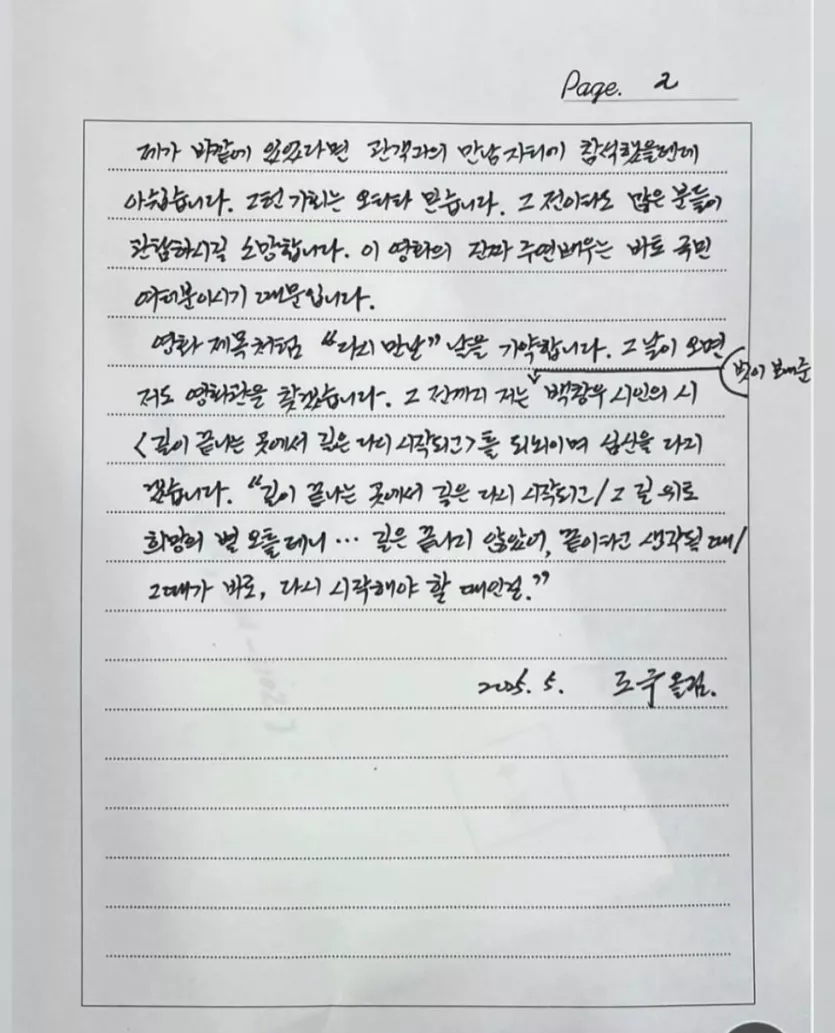 Page. 2
제가 바깥에 있었다면 관객과의 만남 자리에 참석했을텐데
아쉽습니다. 그런 기회는 오리라 믿습니다. 그 전이라도 많은 분들이
관람하시길 소망합니다. 이 영화의 진짜 주연배우는 바로 국민
여러분이시기 때문입니다.
영화 제목처럼 “다시 만날” 날을 기약합니다. 그 날이 오면
벗이 보내준
저도 영화관을 찾겠습니다. 그 전까지 저는 백창우 시인의 시
<길이 끝나는 곳에서 길은 다시 시작되고>를 되뇌이며 심신을 다지
겠습니다. “길이 끝나는 곳에서 길은 다시 시작되고/그 길 위로
희망의 별 오를테니 … 길은 끝나지 않았어, 끝이라고 생각될 때/
그때가 바로, 다시 시작해야 할 때인걸.”
2025. 5. 조국 올림.